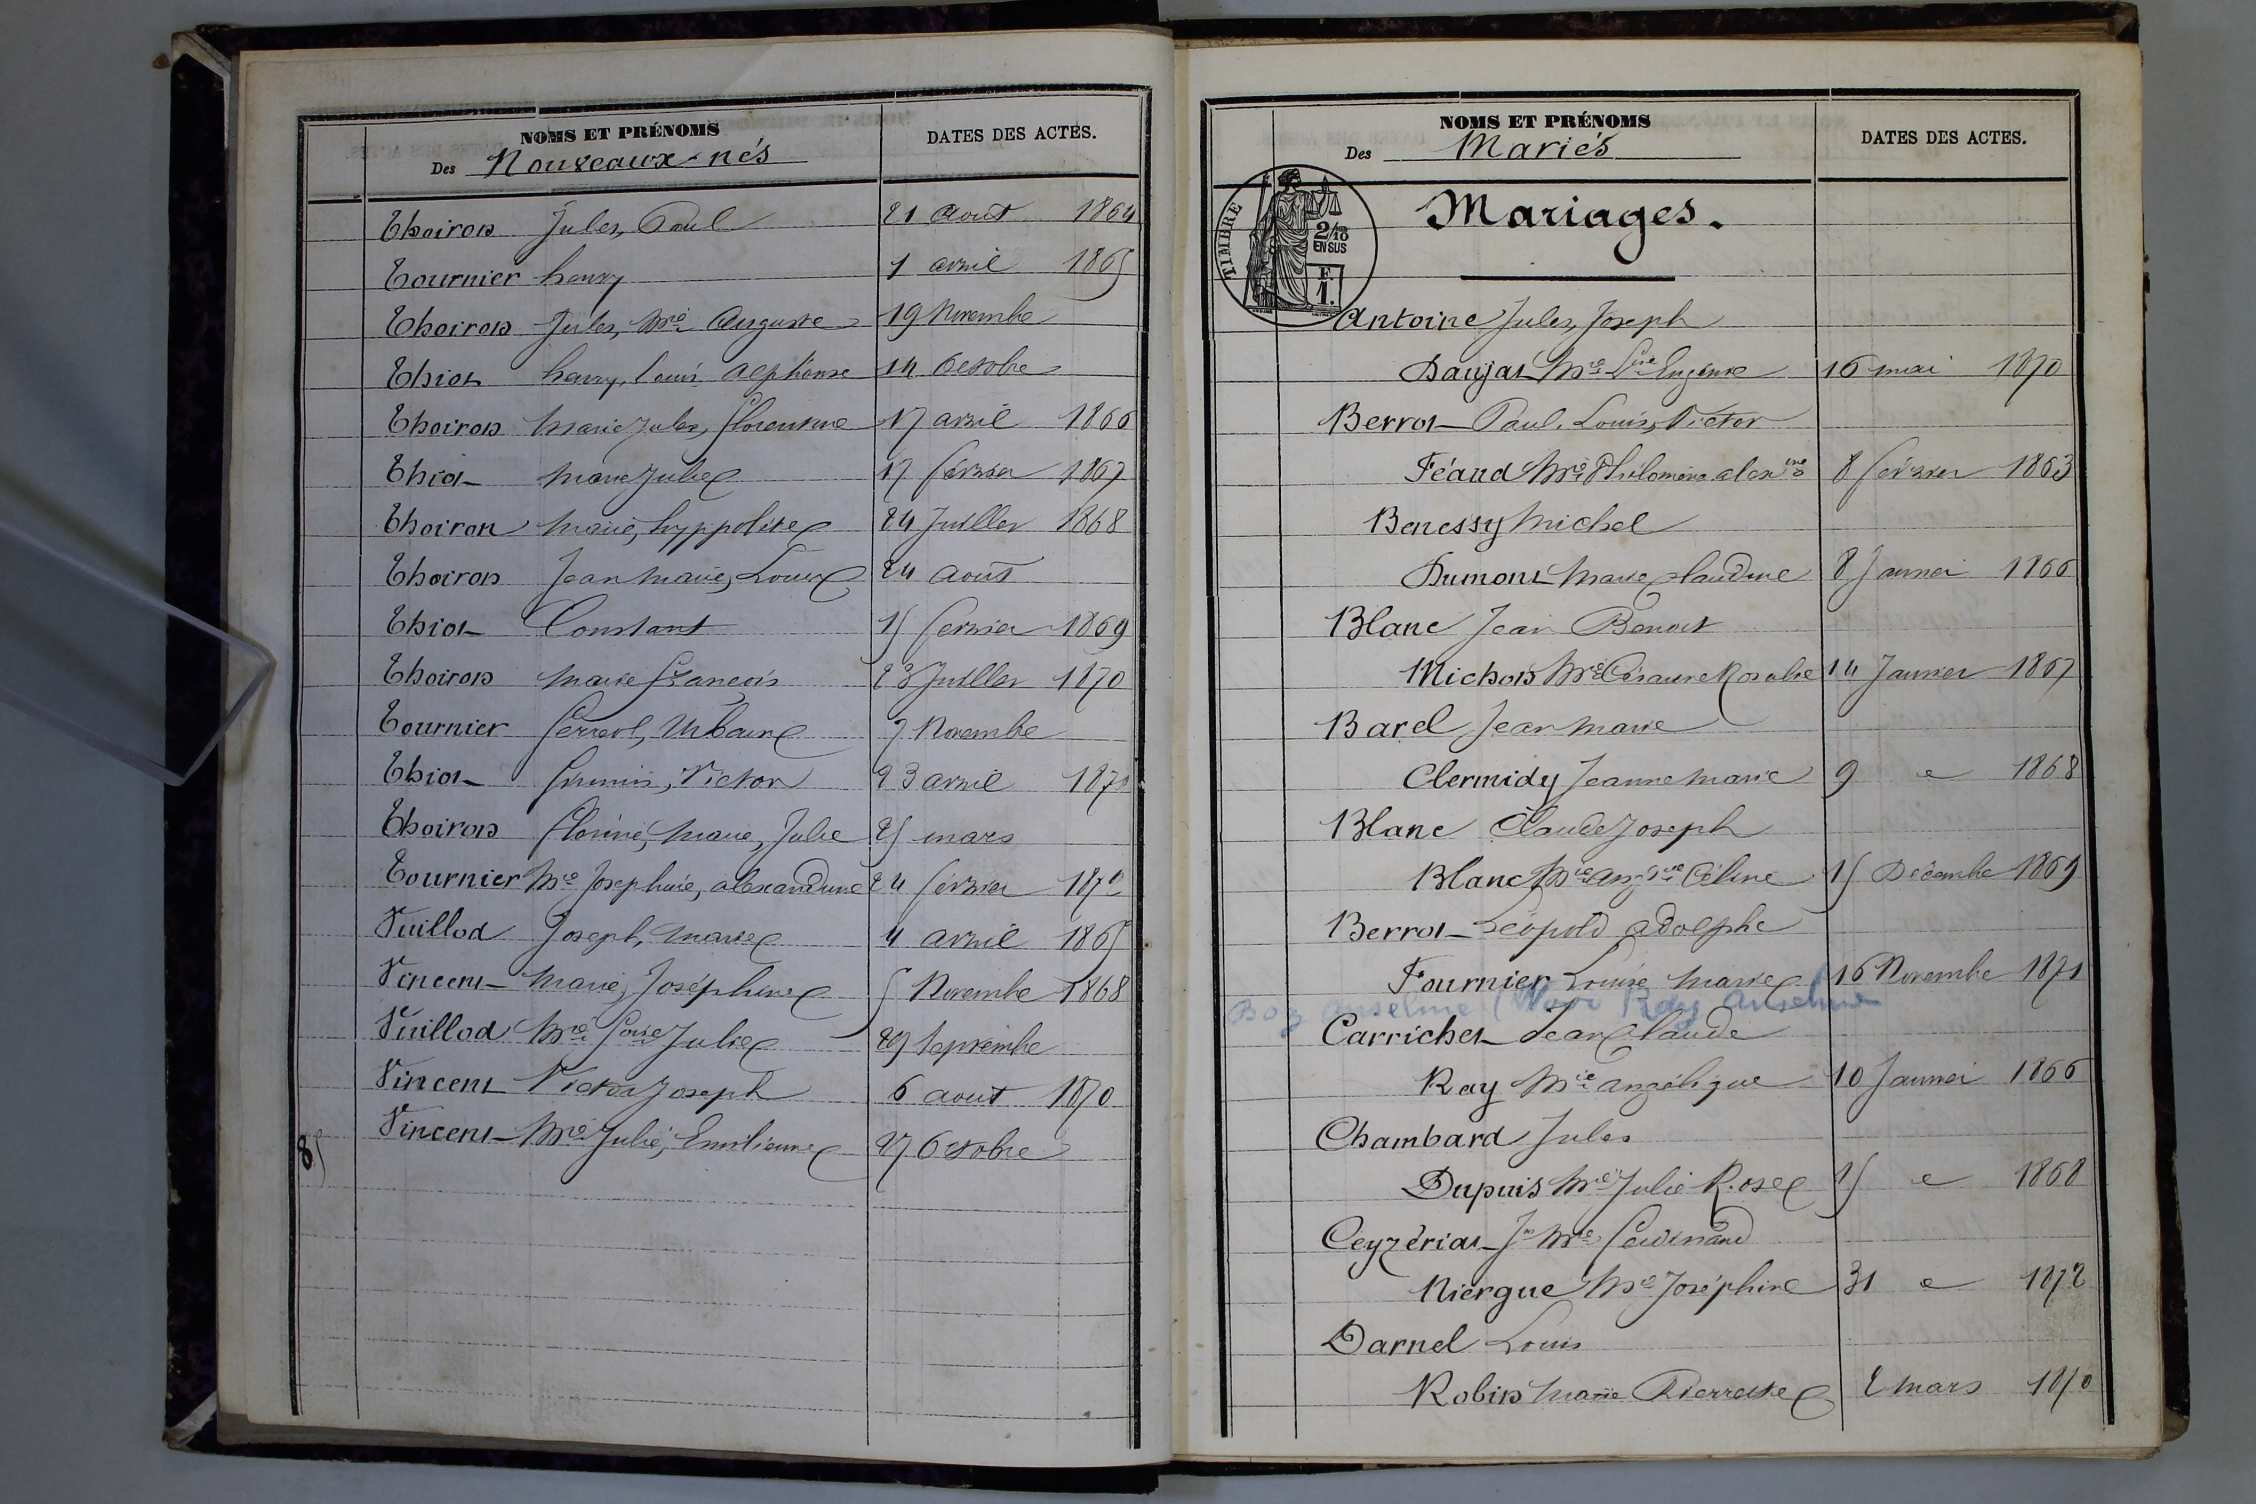 NOMS ET PRÉNOMS
Des Nouveaux-nés
DATES DES ACTES.
Thoiron Jules, Paul 21 aout 1864
Tournier henry 1 avril 1865
Thoiron Jules, Mie Auguste 19 Novembre
Thiot henry, louis alphonse 14 Octobre
Thoiron Marie Jules, florentine 17 avril 1866
Thiot Marie Julie 17 février 1867
Thoiron Marie, hyppolite 24 Juillet 1868
Thoiron Jean Marie, Louis 24 août
Thiot Constant 15 fevrier 1869
Thoiron Marie françois 28 Juillet 1870
Tournier ferreol, Urbain 7 Novembre
Thiot firmin, Victor 23 avril 1871
Thoiron Marie, Julie 25 mars
Tournier Mie Josephine, alexandrine 24 février 1872
Vuillod Joseph, Marie 4 avril 1865
Vincent Marie, Joséphine 5 Novembre 1868
Vuillod Mie Julie 29 Septembre
Vincent Victor Joseph 6 aout 1870
Vincent Mie Julie, Emilienne 27 Octobre
85
NOMS ET PRÉNOMS
Des Mariés
DATES DES ACTES.
TIMBRE
2/10
EN SUS
F.
1.
Mariages.
Antoine Jules, Joseph
Daujat Mie Lse Eugénie 16 mai 1870
Berrot Paul, Louis, Victor
Féaud Mie Philomène alexine 8 février 1863
Benessy Michel
Dumont Marie claudine 8 Janvier 1866
Blanc Jean Benoit
Michon Mie Césarine Rosalie 14 Janvier 1867
Barel Jean Marie
Clermidy Jeanne Marie 9 e 1868
Blanc Claude Joseph
Blanc Mie Céline 15 Décembre 1869
Berrot Léopold adolphe
Fournier Louise Marie 16 Novembre 1871
Boz Anselme (Voir Ray Anselme
Carrichet Jean Claude
Ray Mie angélique 10 Janvier 1866
Chambard Jules
Dupuis Mie Julie Rose 15 e 1868
Ceyzériat Jn Mie ferdinand
Niérgue Mie Joséphine 31 e 1872
Darnel Louis
Robin Marie Pierrette 2 mars 1870